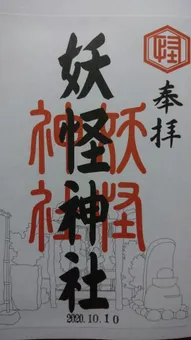 奉拝
妖怪神社
妖怪
神社
2020.10.10